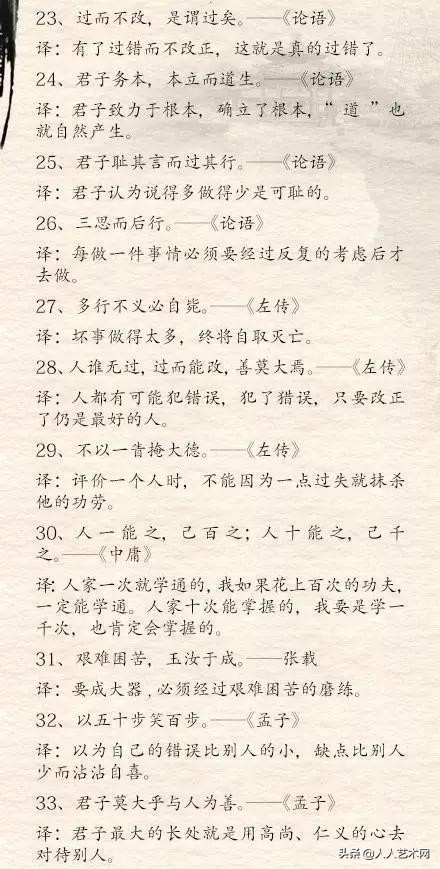 23、过而不改，是谓过矣。——《论语》
译：有了过错而不改正，这就是真的过错了。
24、君子务本，本立而道生。——《论语》
译：君子致力于根本，确立了根本，“道”也
就自然产生。
25、君子耻其言而过其行。——《论语》
译：君子认为说得多做得少是可耻的。
26、三思而后行。——《论语》
译：每做一件事情必须要经过反复的考虑后才
去做。
27、多行不义必自毙。——《左传》
译：坏事做得太多，终将自取灭亡。
28、人谁无过，过而能改，善莫大焉。——《左传》
译：人都有可能犯错误，犯了猎误，只要改正
了仍是最好的人。
29、不以一眚掩大德。——《左传》
译：评价一个人时，不能因为一点过失就抹杀
他的功劳。
30、人一能之，己百之；人十能之，己千
之。——《中庸》
译：人家一次就学通的，我如果花上百次的功夫，
一定能学通。人家十次能掌握的，我要是学一
千次，也肯定会掌握的。
31、艰难困苦，玉汝于成。——张载
译：要成大器，必须经过艰难困苦的磨练。
32、以五十步笑百步。——《孟子》
译：以为自己的错误比别人的小，缺点比别人
少而沾沾自喜。
33、君子莫大乎与人为善。——《孟子》
译：君子最大的长处就是用高尚、仁义的心去
对待别人。
头条@人人艺术网